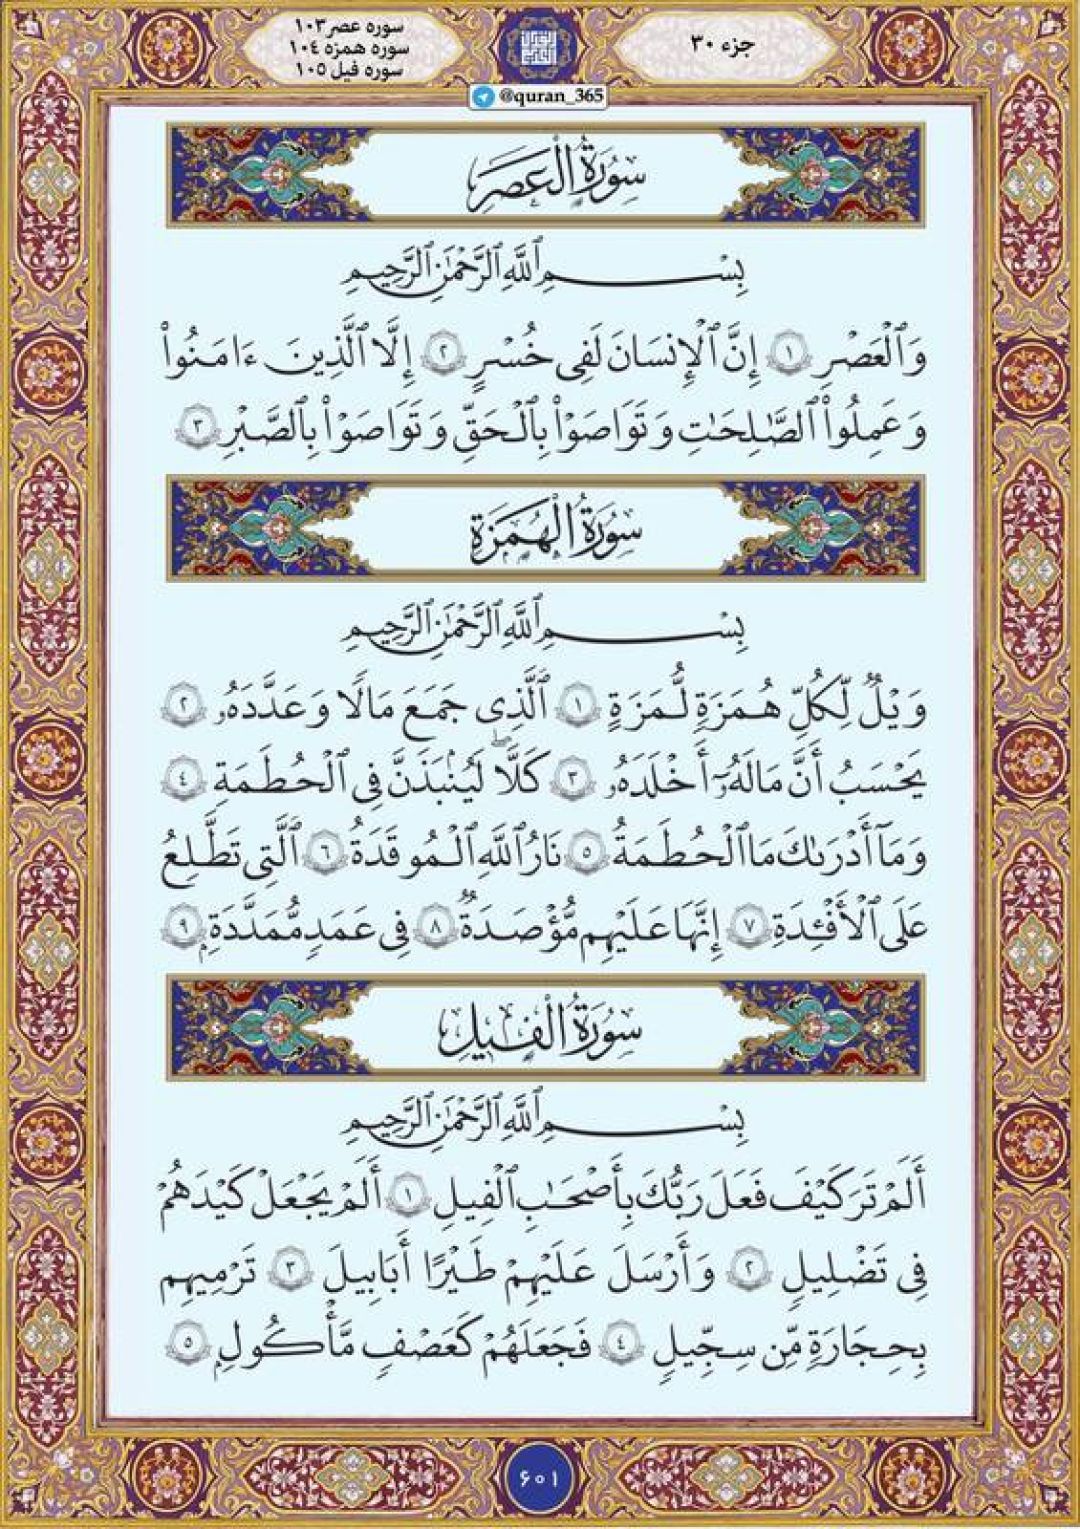 جزء ۳۰
سوره عصر ۱۰۳
سوره همزه ۱۰٤
سوره فیل ۱۰۵
@quran_365
سُورَةُ الْعَصْرِ
بِسْمِ ٱللَّهِ ٱلرَّحْمَٰنِ ٱلرَّحِيمِ
وَٱلْعَصْرِ ١ إِنَّ ٱلْإِنسَانَ لَفِى خُسْرٍ ٢ إِلَّا ٱلَّذِينَ ءَامَنُوا۟
وَعَمِلُوا۟ ٱلصَّـٰلِحَـٰتِ وَتَوَاصَوْا۟ بِٱلْحَقِّ وَتَوَاصَوْا۟ بِٱلصَّبْرِ ٣
سُورَةُ الْهُمَزَةِ
بِسْمِ ٱللَّهِ ٱلرَّحْمَٰنِ ٱلرَّحِيمِ
وَيْلٌ لِّكُلِّ هُمَزَةٍ لُّمَزَةٍ ١ ٱلَّذِى جَمَعَ مَالًا وَعَدَّدَهُۥ ٢
يَحْسَبُ أَنَّ مَالَهُۥٓ أَخْلَدَهُۥ ٣ كَلَّا ۖ لَيُنۢبَذَنَّ فِى ٱلْحُطَمَةِ ٤
وَمَآ أَدْرَىٰكَ مَا ٱلْحُطَمَةُ ٥ نَارُ ٱللَّهِ ٱلْمُوقَدَةُ ٦ ٱلَّتِى تَطَّلِعُ
عَلَى ٱلْأَفْـِٔدَةِ ٧ إِنَّهَا عَلَيْهِم مُّؤْصَدَةٌ ٨ فِى عَمَدٍ مُّمَدَّدَةٍۭ ٩
سُورَةُ الْفِيلِ
بِسْمِ ٱللَّهِ ٱلرَّحْمَٰنِ ٱلرَّحِيمِ
أَلَمْ تَرَ كَيْفَ فَعَلَ رَبُّكَ بِأَصْحَـٰبِ ٱلْفِيلِ ١ أَلَمْ يَجْعَلْ كَيْدَهُمْ
فِى تَضْلِيلٍ ٢ وَأَرْسَلَ عَلَيْهِمْ طَيْرًا أَبَابِيلَ ٣ تَرْمِيهِم
بِحِجَارَةٍ مِّن سِجِّيلٍ ٤ فَجَعَلَهُمْ كَعَصْفٍ مَّأْكُولٍۭ ٥
۶۰۱